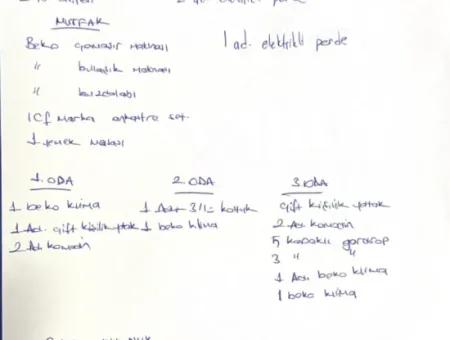 MUTFAK
Beko çamaşır makinası
1 ad. elektrikli perde
" bulaşık makinası
" buzdolabı
ICF marka ankastre set
1 yemek masası
1. ODA
2. ODA
3. ODA
1 beko klima
1 Ad. çift kişilik yatak
2 Ad. komodin
1 Ad. 3/1= koltuk
1 beko klima
çift kişilik yatak
2 Ad. komodin
5 kapaklı gardrop
3 " "
1 Ad. beko klima
1 beko klima